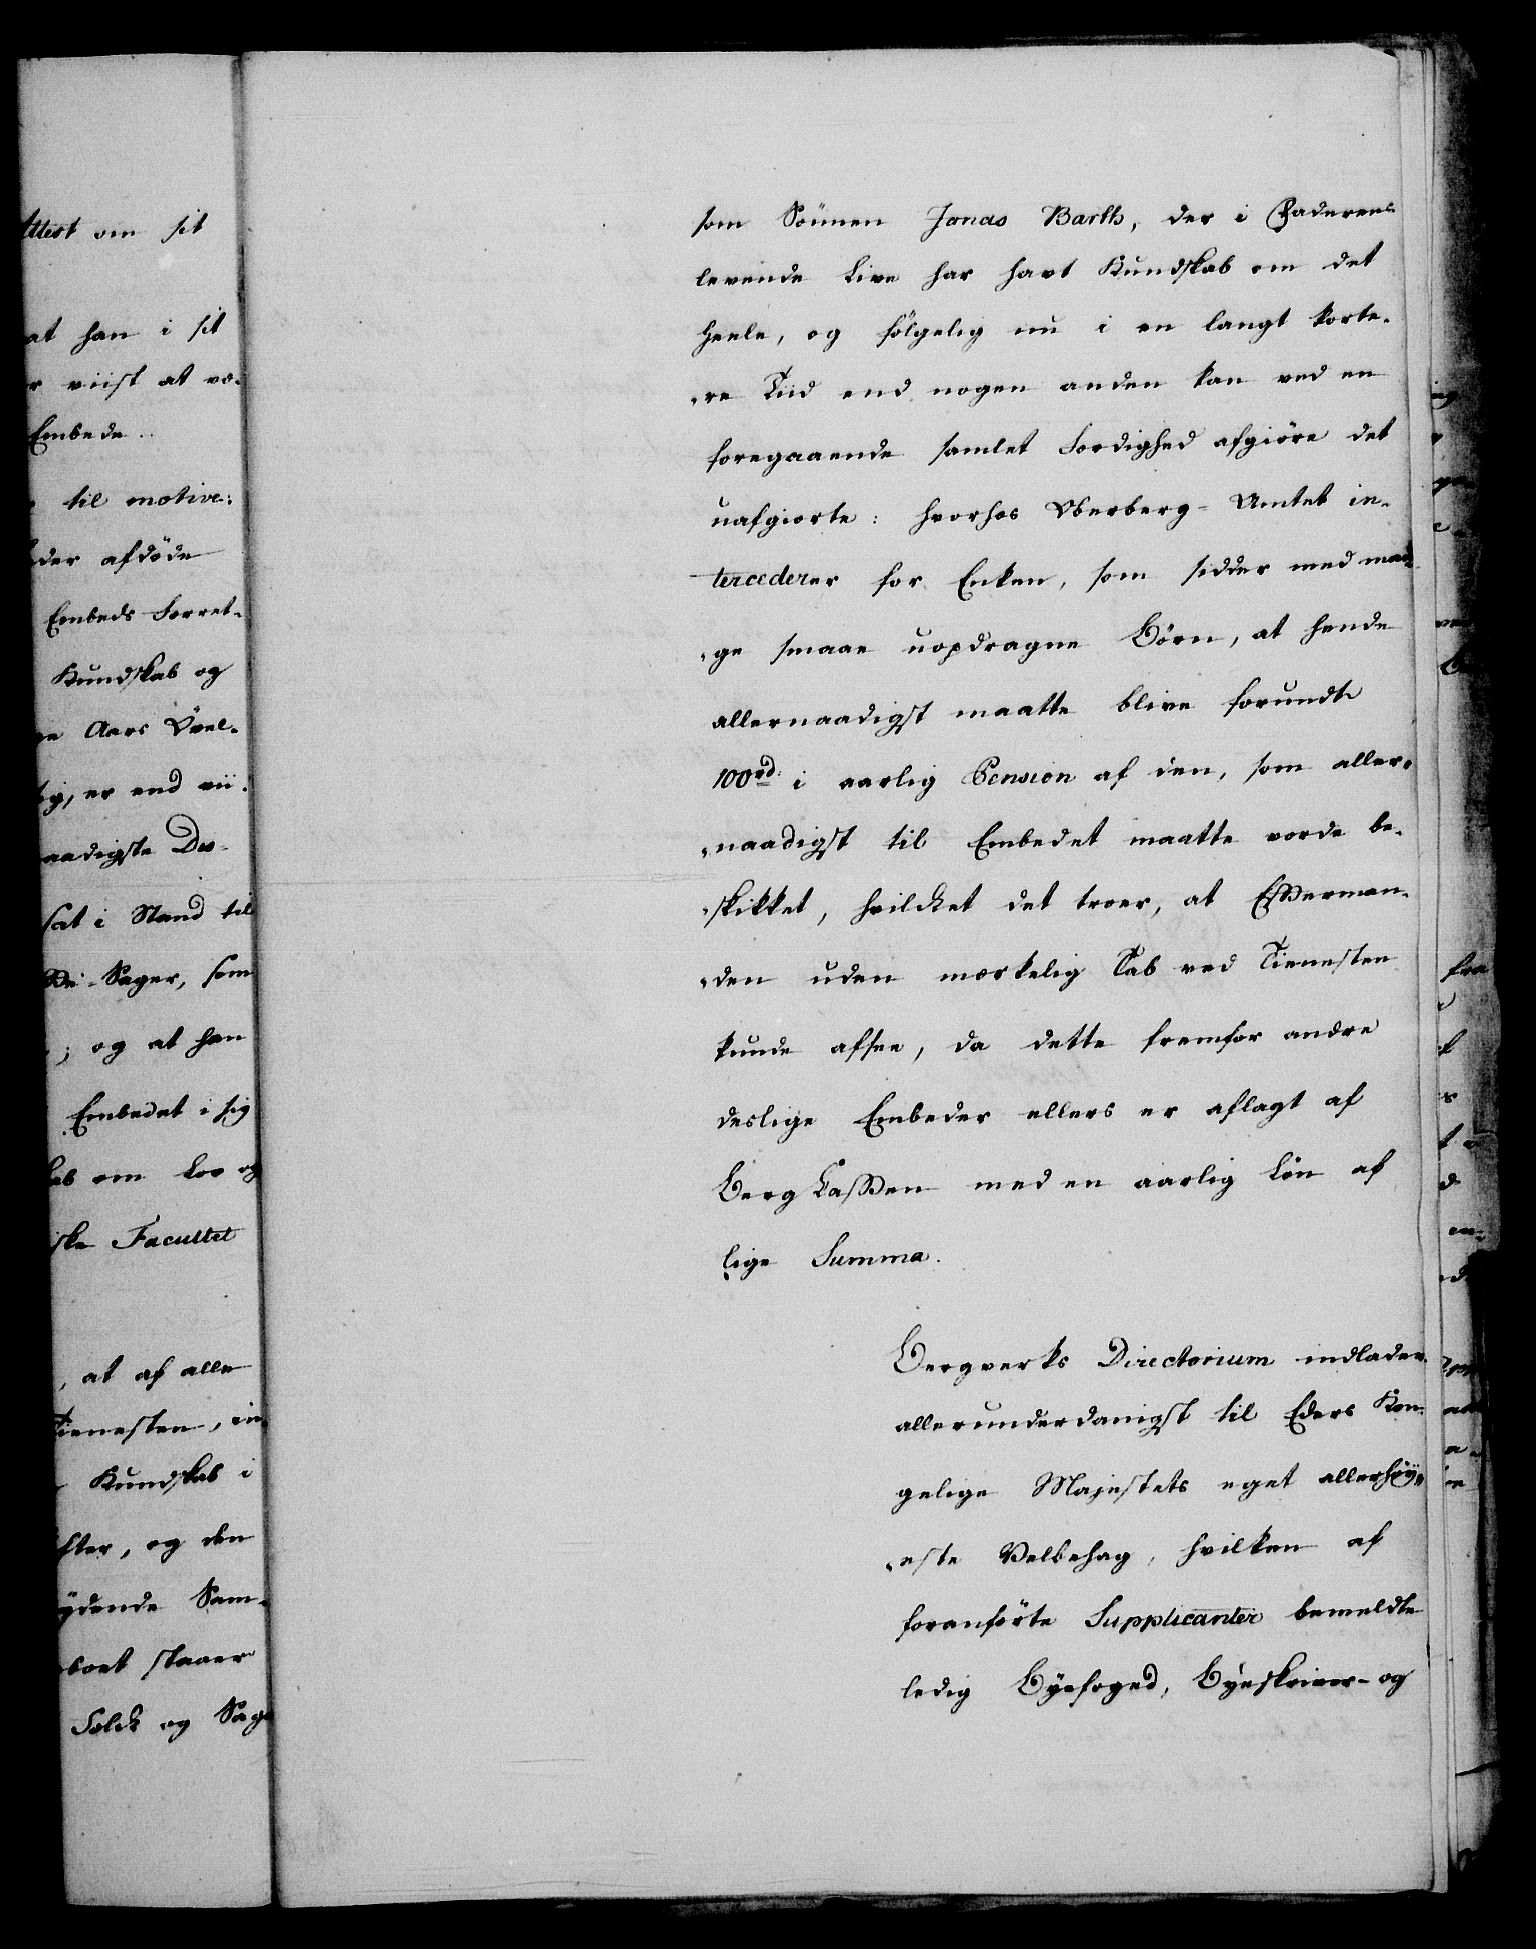 ttest om sit
at han i sit
r viist at væ-
Embede.
til motive:
der afdöde
Embeds Forret-
Kundskab og
ge Aars Övel-
ig, er end vii-
naadigste Do-
sat i Stand til
Sager, som
; og at han
Embedet i sig
ab om Lov og
iske Facultet
, at af alle
Tienesten, in-
Kundskab i
fter, og den
ydende Sam-
boet staaer
Folck og Sage
som Sönnen Jonas Barth, der i Faderens
levende Live har havt Kundskab om det
heele, og fölgelig nu i en langt korte-
-re Tiid end nogen anden kan ved en
foregaaende samlet Færdighed afgiöre det
uafgiorte: hvorhos Oberberg-Amtet in-
tercederer for Enken, som sidder med man-
-ge smaae uopdragne Börn, at hende
allernaadigst maatte blive forundt
100rd. i aarlig Pension af den, som aller-
-naadigst til Embedet maatte vorde be-
-skikket, hvilcket det troer, at Efterman-
-den uden mærkelig Tab ved Tienesten
kunde afsee, da dette fremfor andre
deslige Embeder ellers er aflagt af
Berg Cassen med en aarlig Lön af
lige Summa.
Bergverks Directorium indlader
allerunderdanigst til Eders Kon-
gelige Majestets eget allerhöy-
-este Velbehag, hvilken af
foranförte Supplicanter bemeldte
ledig Byefoged, Byeskriver- og